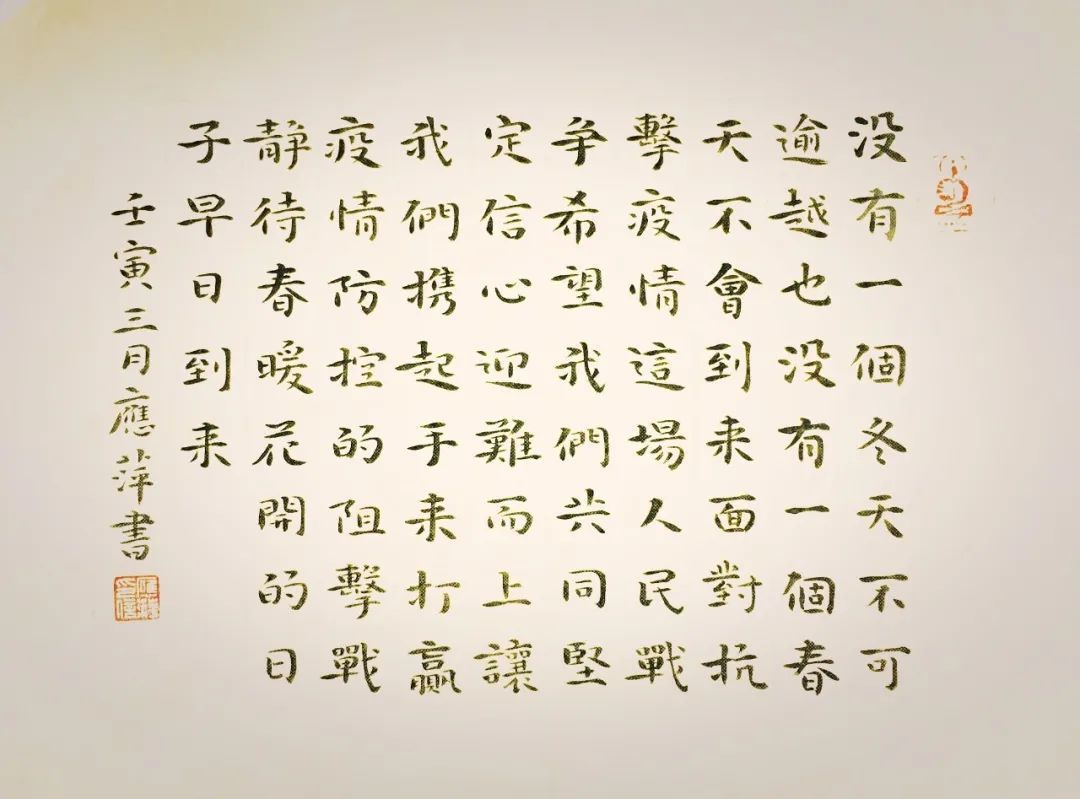 没有一個冬天不可
逾越也没有一個春
天不會到来面對抗
擊疫情這場人民戰
争希望我們共同堅
定信心迎難而上讓
我們携起手来打贏
疫情防控的阻擊戰
静待春暖花開的日
子早日到来
壬寅三月應萍書